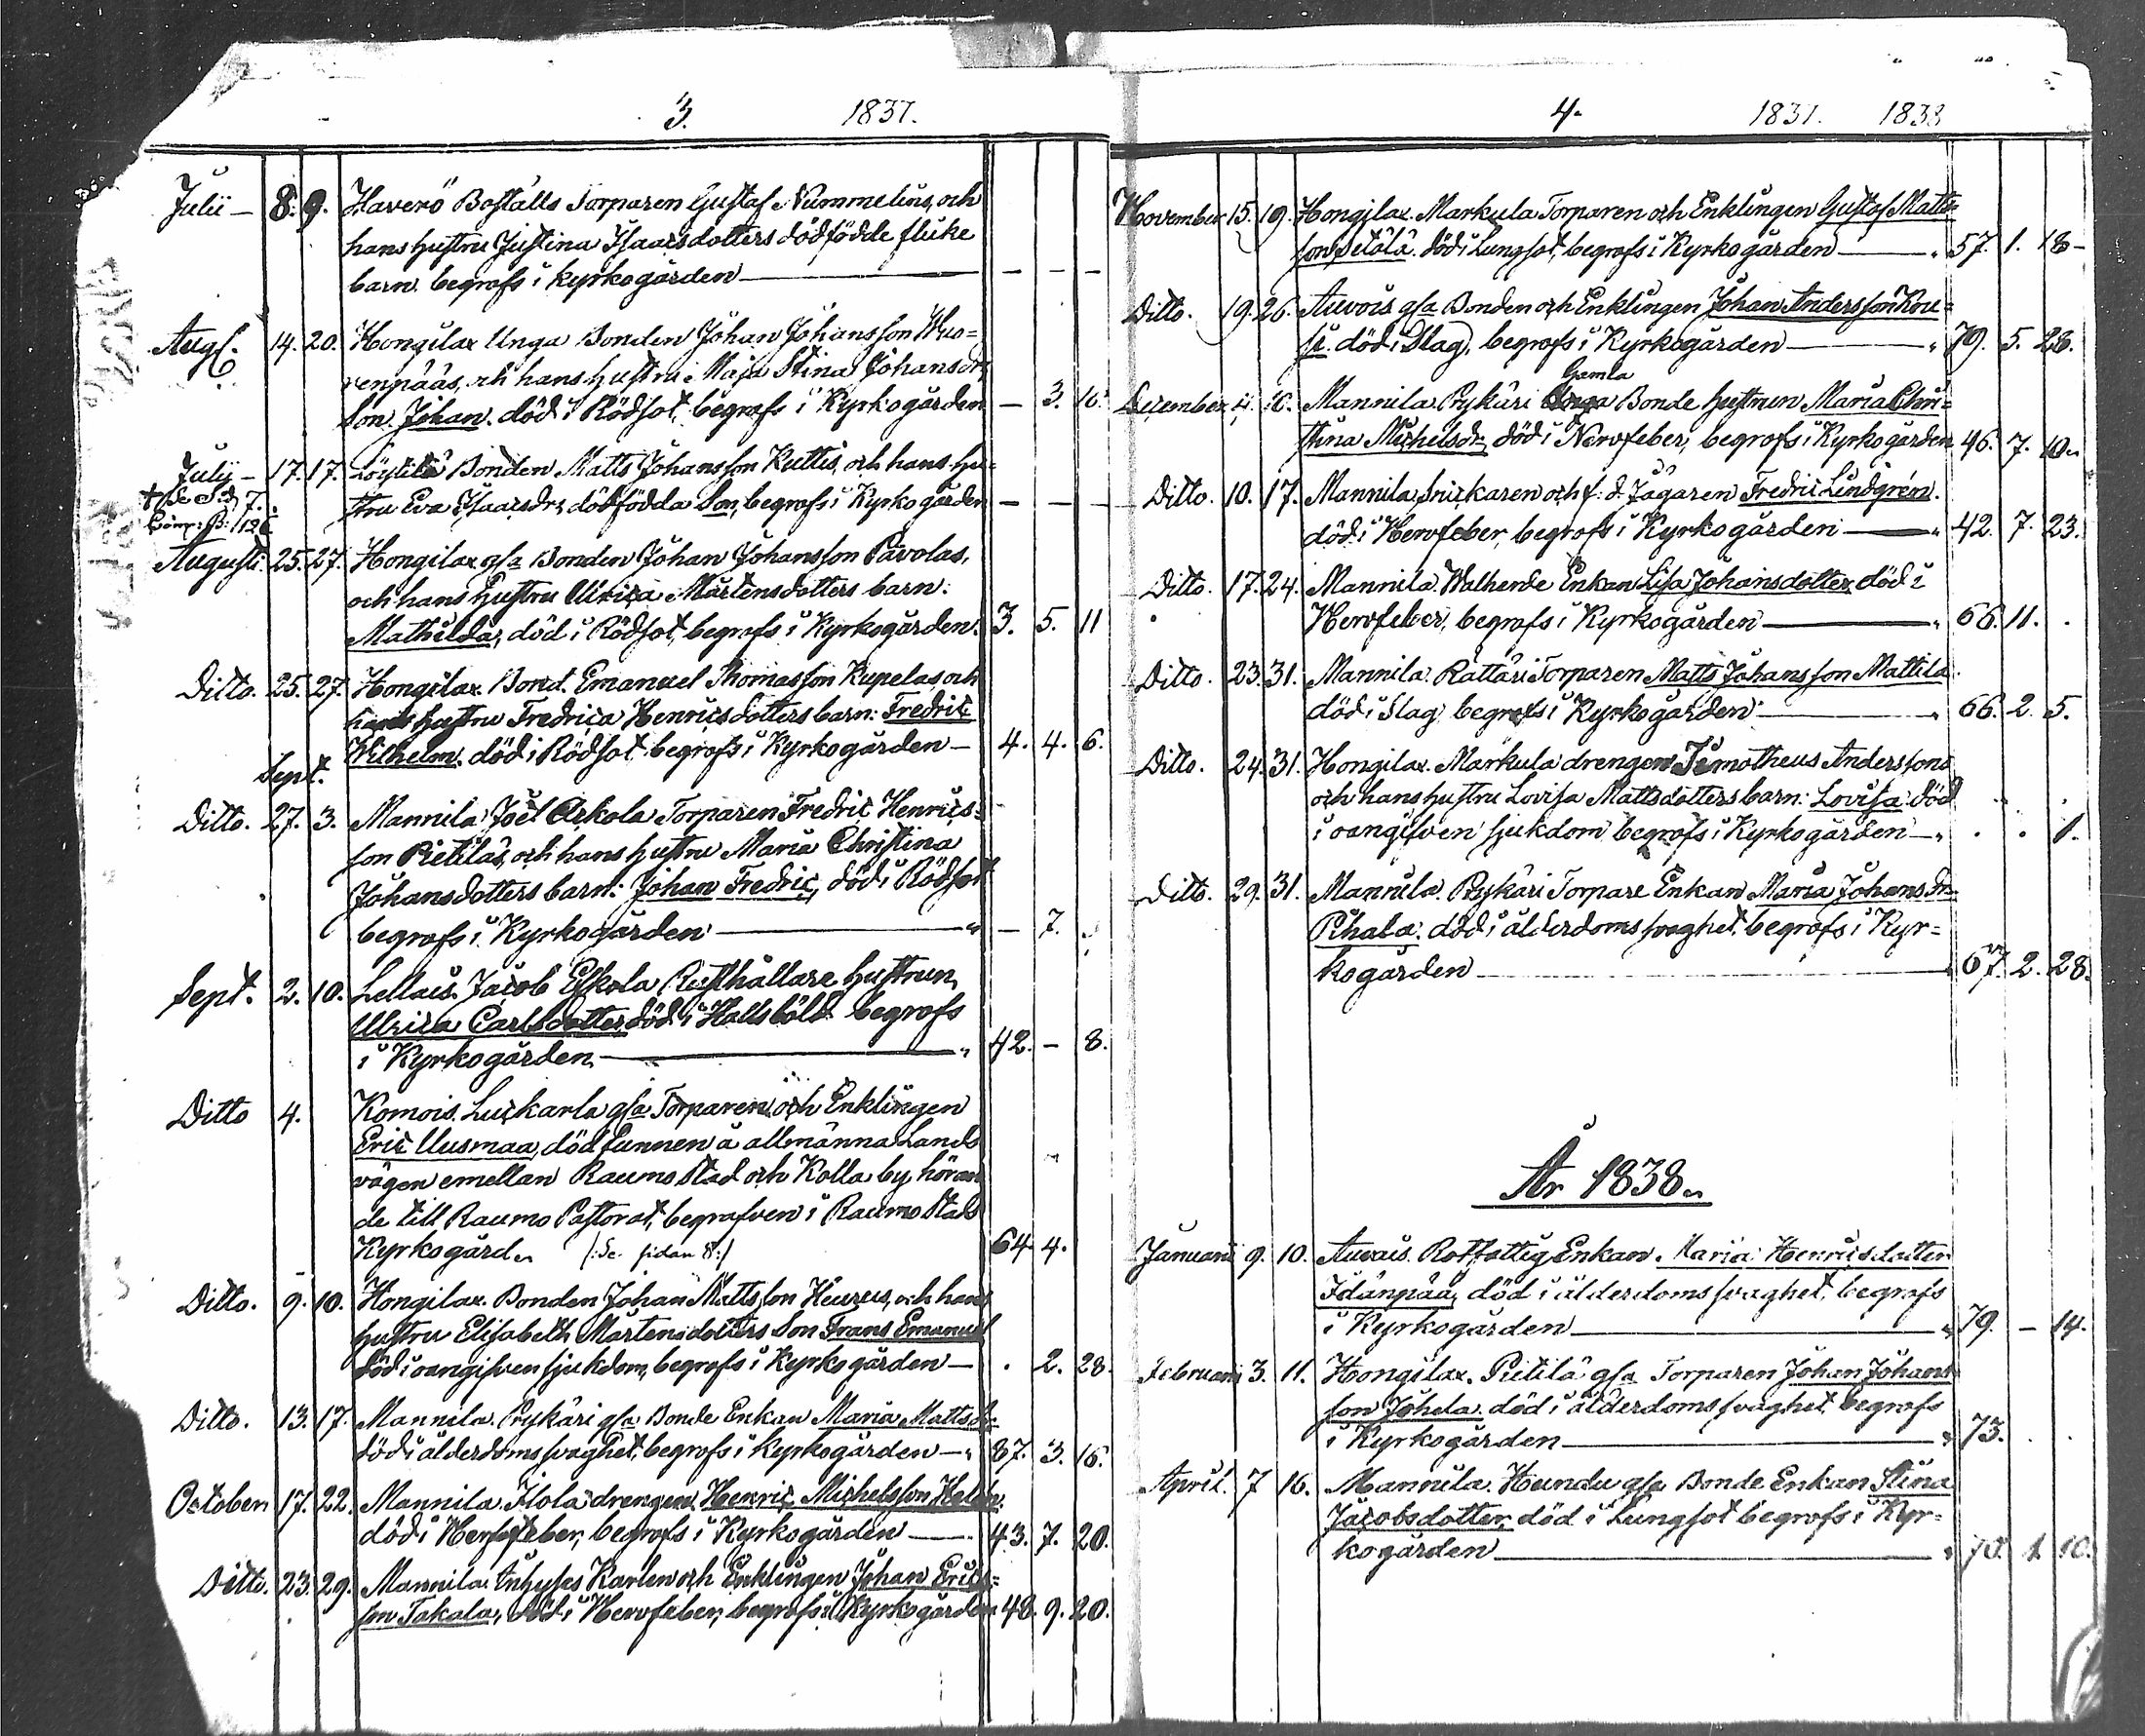 3. 1837.
Julii — 8. 9. Haverö Boställs Torparen Gustaf Nummelins, och
hans hustru Justina Isaacsdotters dödfödde flicke
barn. begrofs i kyrkogården — — — —
Augs. 14. 20. Hongilax Unga Bonden Johan Johansson
renpääs, och hans hustru Maja Stina Johansdrs
Son Johan. död i Rödsot, begrofs i Kyrkogården — 3. 10.
Julij — 17. 17. Löytilä Bonden Matts Johansson Kuttis, och hans hu=
stru Eva Isaacsdrs dödfödda Son, begrofs i Kyrkogården — — —
Augusti. 25. 27. Hongilax gla Bonden Johan Johansson Pavolas,
och hans hustru Ulrica Mårtensdotters barn:
Mathilda, död i Rödsot, begrofs i Kyrkogården. 3. 5. 11
Ditto. 25. 27. Hongilax. Bond. Emanuel Thomasson Kupelas, och
hans hustru Fredrica Henricsdotters barn: Fredric
Wilhelm. död i Rödsot begrofs i Kyrkogården — 4. 4. 6.
Sept.
Ditto. 27. 3. Mannila Joel Arkola Torparen Fredric Henrics=
son Pietiläs, och hans hustru Maria Christina
Johansdotters barn: Johan Fredric, död i Rödsot
begrofs i Kyrkogården — " — 7.
Sept. 2. 10. Lellais. Jacob Eskola Rusthållare hustrun,
Ulrica Carlsdotter död i Hallsböld begrofs
i Kyrkogården — " 42. — 8.
Ditto 4. Komois. Luckarla gla Torparen och Enklingen
Eric Uusmaa, död funnen å allmänna Lands
vägen emellan Raumo Stad och Kolla by höran
de till Raumo Pastorat, begrafven i Raumo Stads
Kyrkogård. /: Se sidan 8:/ 64. 4.
Ditto. 9. 10. Hongilax. Bonden Johan Mattsson Heurus, och hans
hustru Elisabeth Mårtensdotters Son Frans Emanuel
död i oangifven sjukdom, begrofs i Kyrkogården — . 2. 28.
Ditto. 13. 17. Mannila. Prykäri gla Bonde Enkan Maria Mattsdr
död i ålderdomssvaghet, begrofs i Kyrkogården — " 87. 3. 16.
October 17. 22. Mannila Ilola drengen Henric Michelsson
död i Nervfeber, begrofs i Kyrkogården — 43. 7. 20.
Ditto. 23. 29. Mannila Inhyses Karlen och Enklingen Johan Erics=
son Takala, död i Nervfeber, begrofs i Kyrkogården 48. 9. 20.
4. 1837. 1838
November 15. 19. Hongilax. Markula Torparen och Enklingen Gustaf Matts=
son död i Lungsot, begrofs i Kyrkogården — " 57. 1. 18 —
Ditto. 19. 26. Auvois gla Bonden och Enklingen Johan Andersson Kou=
si. död i Slag, begrofs i Kyrkogården — " 79. 5. 28.
Gamla
December 4. 10. Mannila Prykäri Unga Bonde hustrun Maria Chri=
stina Michelsdr, död i Nervfeber, begrofs i Kyrkogården 46. 7. 10.
Ditto. 10. 17. Mannila Snickaren och f. d. Jägaren Fredric Lindgrén.
död i Nervfeber, begrofs i Kyrkogården — " 42. 7. 23.
Ditto. 17. 24. Mannila. Walhende Enkan Lisa Johansdotter, död i
Nervfeber, begrofs i Kyrkogården — " 66. 11. .
Ditto. 23. 31. Mannila. Rättäri Torparen Matts Johansson Mattila
död i Slag, begrofs i Kyrkogården — " 66. 2. 5.
Ditto. 24. 31. Hongilax. Markula drengen Timotheus Anderssons
och hans hustru Lovisa Mattsdotters barn: Lovisa död
i oangifven sjukdom begrofs i Kyrkogården — " . . 1.
Ditto. 29. 31. Mannila. Prykäri Torpare Enkan Maria Johansdr
Pihala. död i ålderdomssvaghet, begrofs i Kyr=
kogården — " 67. 2. 28.
År 1838.
Januari 9. 10. Auvais. Rotfattig Enkan. Maria Henricsdotter
Idänpää, död i ålderdomssvaghet, begrofs
i Kyrkogården — " 79. — 14.
Februari 3. 11. Hongilax. Pietilä gla Torparen Johan Johans
son död i ålderdomssvaghet, begrofs
i Kyrkogården — " 73. . .
April. 7 16. Mannila. Hundu gla Bonde Enkan Stina
Jacobsdotter, död i Lungsot begrofs i Kyr=
kogården — " 70. 1 10.